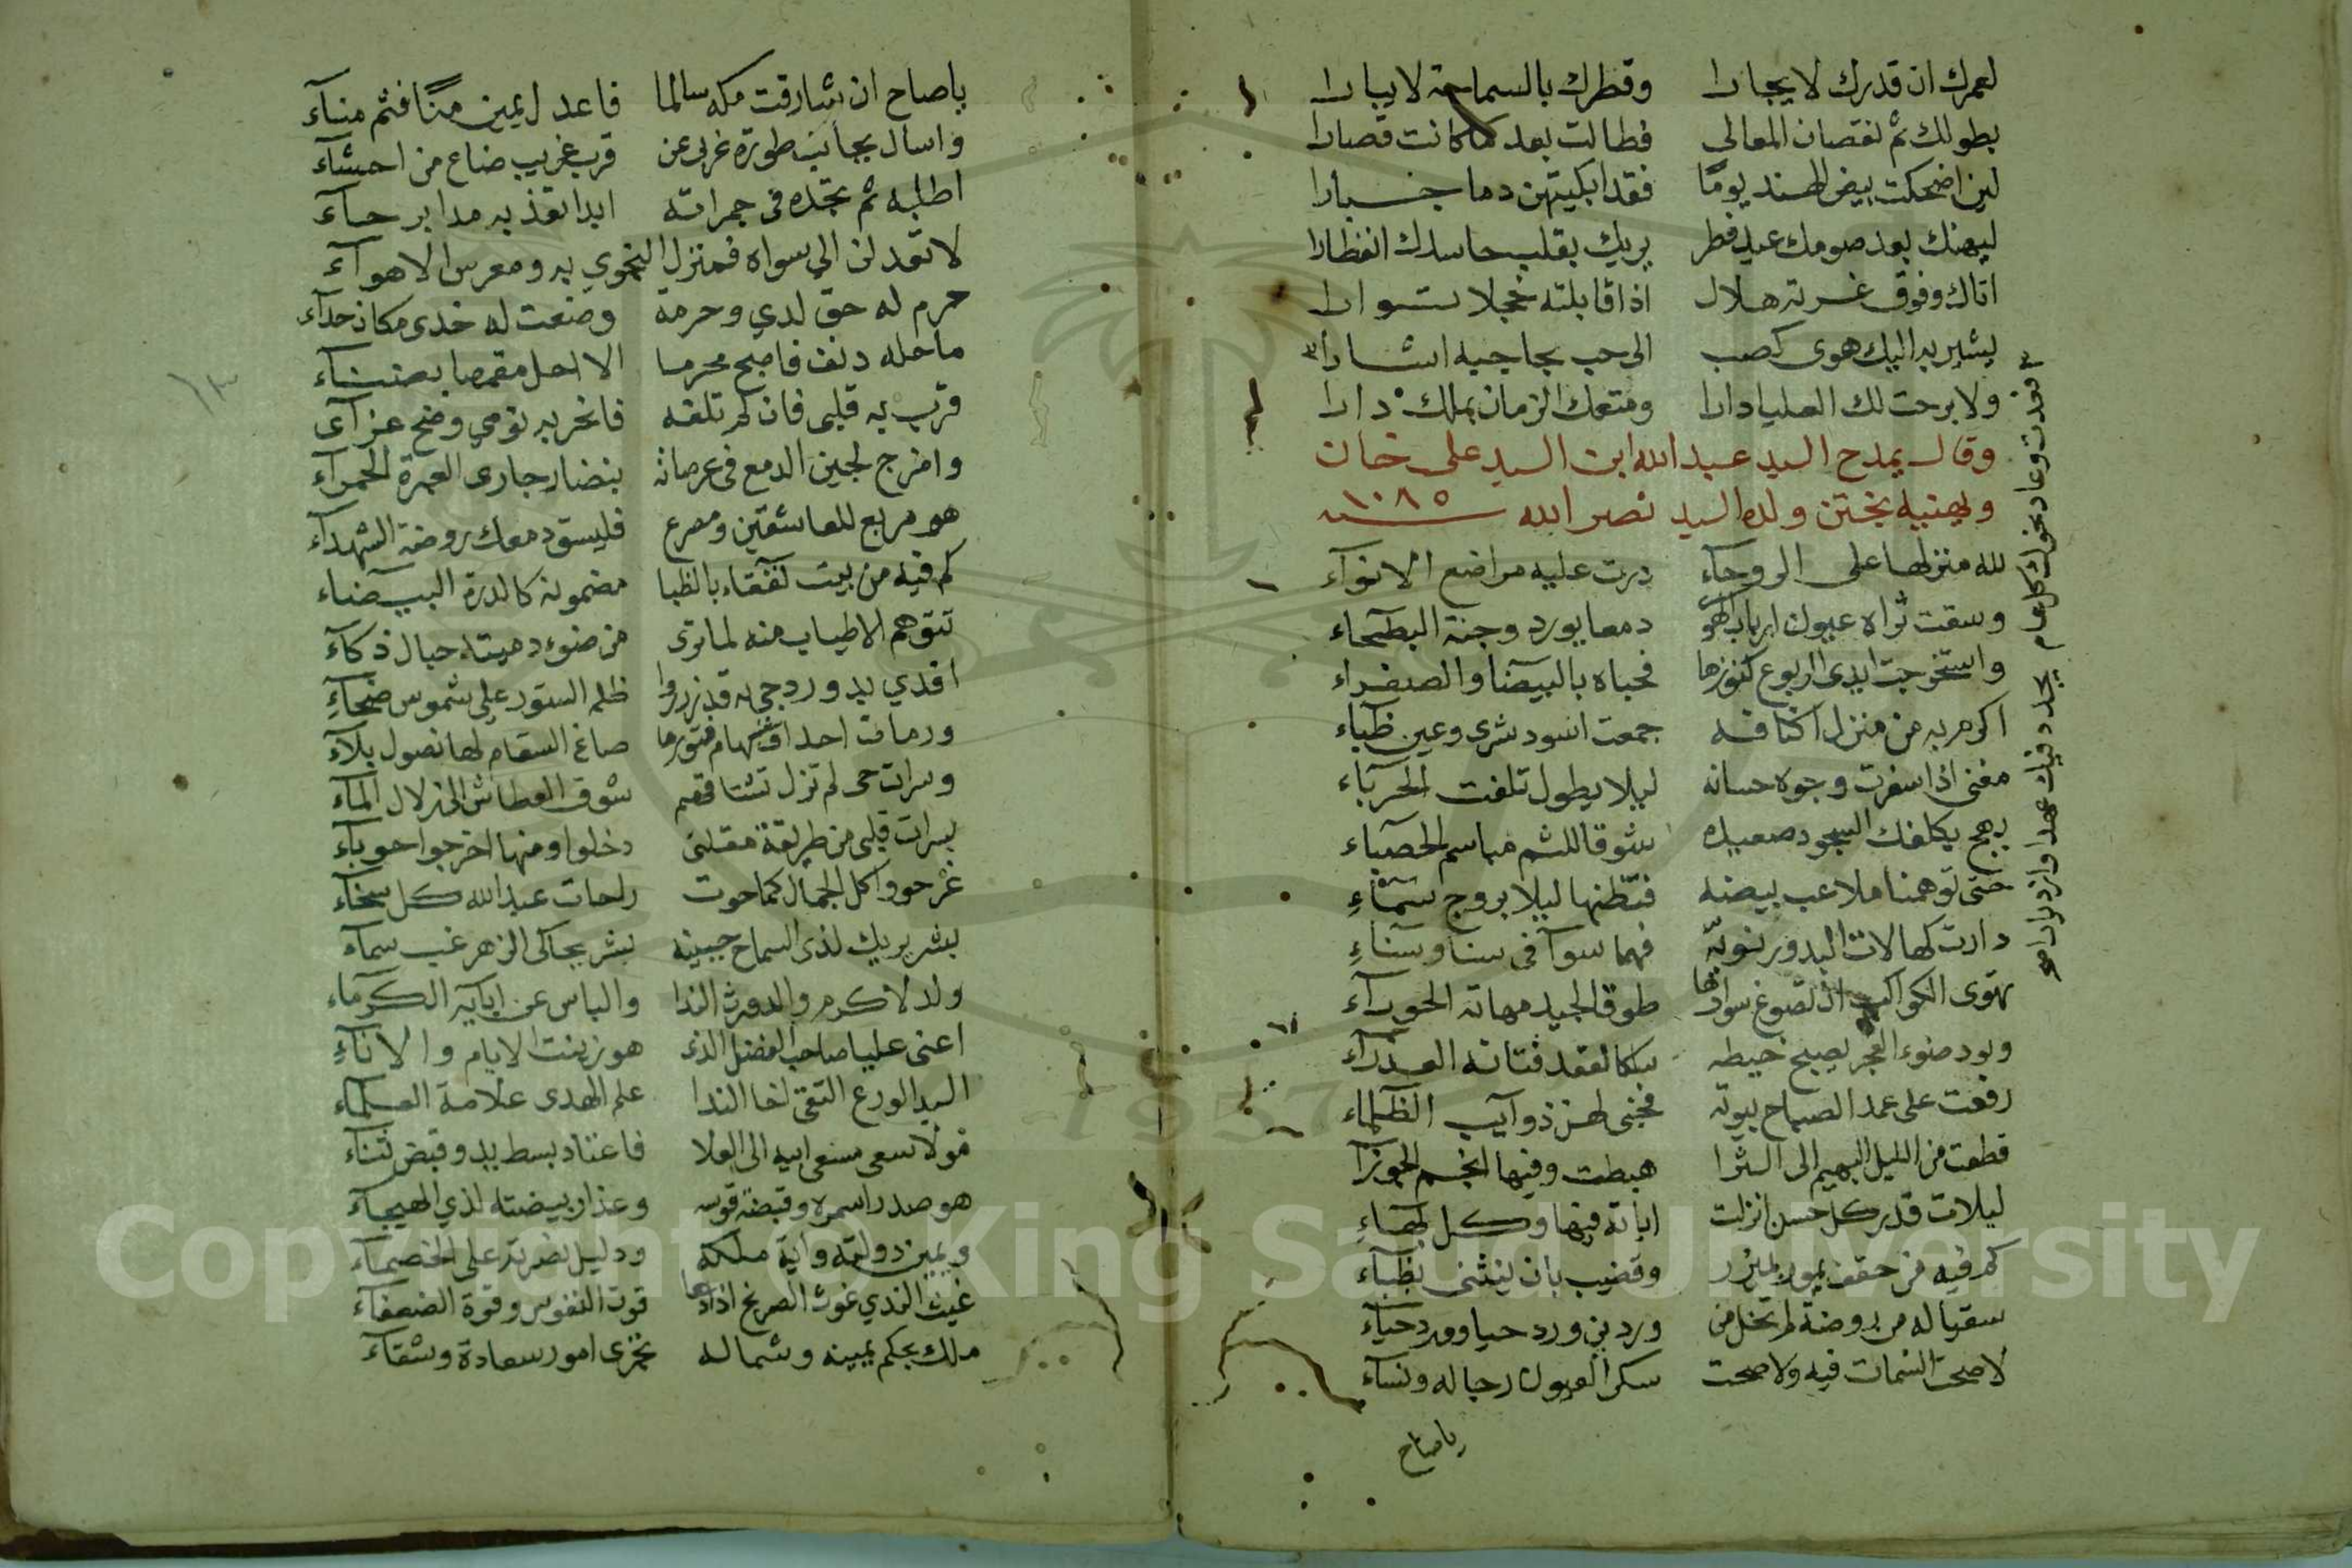 لعمرك ان قدرك لا يجارا وقطرك بالسماحة لا يبارا
بطولك تم نقصان المعالي فطالت بعد ما كانت قصارا
لين اضحكت بيض الهند يومًا فقد ابكيتهن دما جبارا
ليهنك بعد صومك عيد فطر يريك بقلب حاسدك انفطارا
اتاك وفوق غرته هلال اذا قابلته خجلا توارا
يشير به اليك هوى كصب الى حب بحاجبيه اشارا ٣
ولا برحت لك العليا دارا ومتعك الزمان بملك دارا
وقال يمدح السيد عبد الله ابن السيد علي خان
ويهنيه بختن ولده السيد نصر الله سنة ١٠٨٥
لله منزلها على الروحآء درت عليه مراضع الانوآء
وسقت ثراه عيون ارباب الهوى دمعا يورد وجنة البطحاء
واستخرجت ايدي الربوع كنوزها فحباه بالبيضا والصفراء
اكرم به من منزل اكنافه جمعت اسود شرى وعين ظبآء
مغنى اذا سفرت وجوه حسانه ليلا يطول تلفت الحربآء
بهج يكلفك السجود صعيده شوقا للثم مباسم الحصباء
حتى توهمنا ملاعب بيضه فنظنها ليلا بروج سمآءِ
دارت كهالات البدور نويّه فهما سوآ في سنا وسنآءِ
تهوى الكواكب ان تصوغ سوارها طوقا لجيد مهاته الحورآء
ويود ضوء الفجر يصبح خيطه سلكا لعقد فتاته العذرآء
رفعت على عمد الصباح بيوته فجنى لهن ذوآيب الظلماء
قطعت من الليل البهيم الى الثرا هبطت وفيها انجم الجوزآ
ليلات قدر كل حسن انزلت اياته فيها وكل بهآءِ
كم فيه من حقف يمور بمئزر وقضيب بان ينثني بظبآء
سقيا له من روضة لم تخل من ورد بن ورد حيا وورد حيآء
لا صحت النسمات فيه ولا صحت سكرا العيون رجاله ونسآء
ياصاح
٣ فعدت وعاد نحوك كل عام يجدد فيك عهدا وازديارا صح
ياصاح ان شارفت مكه سالما فاعدل يمين منًا فثم منآء
واسال بجانب طوره غربي عن قرب غريب ضاع من احشآء
اطلبه ثم تجده في جمراته ابدا تعذبه مدا برحآء
لا تعدلن الي سواه فمنزل النجوي به ومعرس الاهوآء
حرم له حق لدي وحرمة وضعت له خدى مكان حذآء
ما حله دنف فاصبح محرما الا احل مقمصا بضنآء
قرب به قلبي فان لم تلقه فانحر به نومي وضح عزآى
وامزج لجين الدمع في عرصاته بنضار جاري العبرة الحمرآء
هو مربع للعاشقين ومصرع فليسق دمعك روضة الشهدآء
كم فيه من بيت تقفاء بالظبا مضمونه كالدرة البيضاء
تتوهم الاطياب منه لما ترى من ضوء دميته حبال ذكآء
افدي بدور دجى به قد زرروا ظلم الستور علي شموس ضحآءِ
ورمات احداق سهام فتورها صاغ السقام لها نصول بلآء
وسرات حى لم تزل تشتاقهم شوق العطاش الى زلال المآء
بسرات قلبي من طريقة مقلتى دخلوا ومنها اخرجوا حوبآء
غر حووا كل الجمال كما حوت راحات عبد الله كل سخآء
بشر يريك لذى السماح جبينه بشر يحاكى الزهر غب سمآء
ولد لاكرم والد ورث الندا والباس عن ابآيه الكرمآء
اعنى عليا صاحب الفضل الذى هو زينت الايام والانآءِ
السيد الورع التقى اخا الندا علم الهدى علامة العلماء
مولا سعى مسعى ابيه الى العلا فاعتاد بسط يد وقبض ثنآء
هو صدر اسمره وقبضة قوسه وعذار بيضته لذي الهيجآء
ويمين دولته واية ملكه ودليل نصرته على الخصمآء
غيث الندي غوث الصريخ اذا دعا قوت النفوس وقوة الضعفآء
ملك بحكم يمينه وشماله تجرى امور سعادة وشقآء
١٣
Copyright © King Saud University
1957